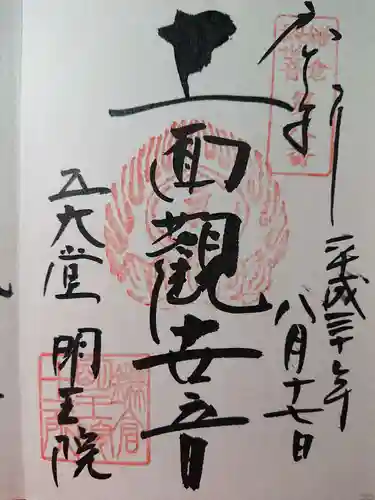 奉拝
平成三十年
八月十七日
十一面觀世音
五大堂 明王院